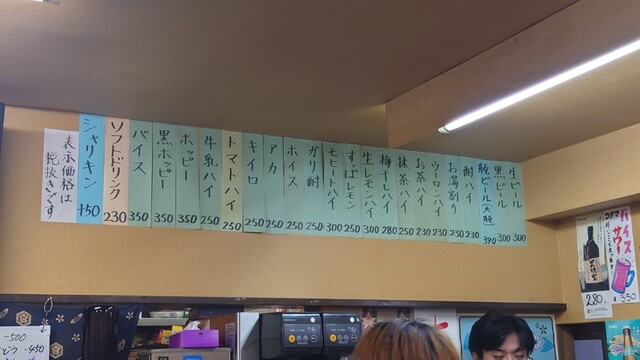 生ビール 300
黒ビール 300
瓶ビール(大瓶) 390
酎ハイ 230
お湯割り 230
ウーロンハイ 230
お茶ハイ 230
抹茶ハイ 250
梅干しハイ 280
生レモンハイ 300
すっぱレモン 250
モヒートハイ 300
ガリ酎 250
ホイス 250
アカ 250
キイロ 250
トマトハイ 250
牛乳ハイ 250
ホッピー 350
黒ホッピー 350
バイス 350
ソフトドリンク 230
シャリキン +50
表示価格は
税抜きです
コダマ
バイス
サワー
280
350
-500
450